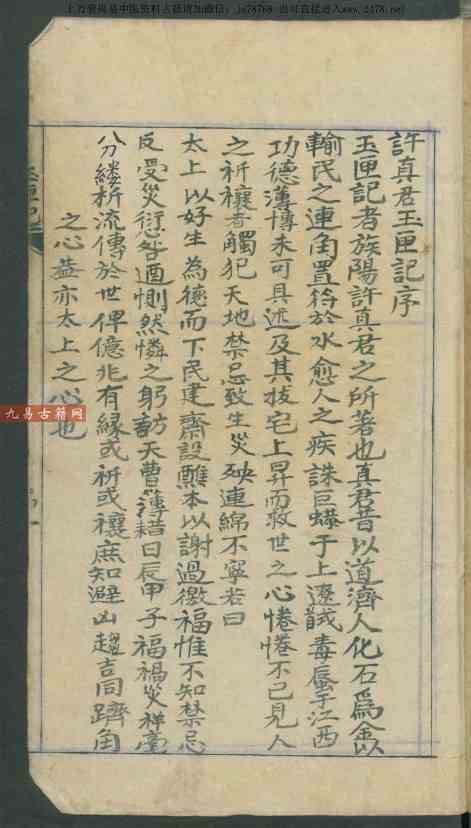 許真君玉匣記序
玉匣記者旌陽許真君之所著也真君昔以道濟人化石為金以
輸民之逋負置符於水愈人之疾誅巨蟒于上遼馘毒蜃于江西
功德薄博未可具述及其拔宅上昇而救世之心惓惓不已見人
之祈禳者觸犯天地禁忌致生災殃連綿不寧若曰
太上以好生為德而下民建齋設醮本以謝過徼福惟不知禁忌
反受災愆咎遒惻然憐之躬訪天曹簿藉日辰甲子福禍災祥毫
分縷析流傳於世俾億兆有緣或祈或禳庶知避凶趨吉同躋
之心葢亦太上之心也
九易古籍网